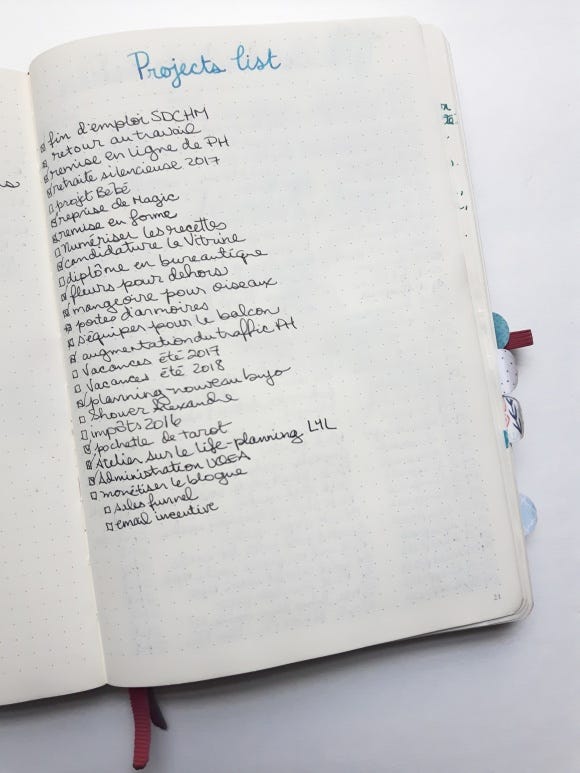 Projects list
fin d'emploi SDCHM
retour au travail
remise en ligne de PH
retraite silencieuse 2017
projet Bébé
reprise de Magic
remise en forme
Numériser les recettes
candidature la Vitrine
diplôme en bureautique
fleurs pour dehors
mangeoire pour oiseaux
portes d'armoires
s'équiper pour le balcon
augmentation du traffic PH
Vacances été 2017
Vacances été 2018
planning nouveau bujo
Shower Alexandre
impôts 2016
pochette de tarot
Atelier sur le life-planning
Administration
monétiser le blogue
sales funnel
email incentive
21